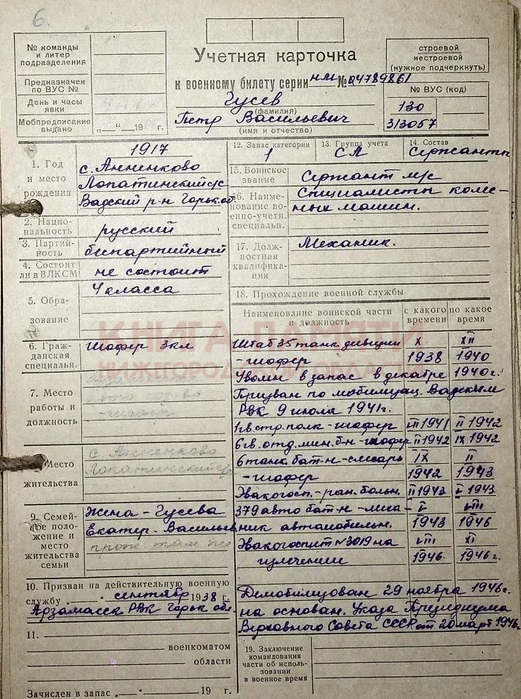 6.
№ команды
и литер
подразделения
Предназначен
по ВУС №
День и часы
явки
Мобпредписание
выдано „ “ 19 г.
Учетная карточка
к военному билету серии НМ № 04789861
Гусев
(фамилия)
Петр Васильевич
(имя и отчество)
строевой
нестроевой
(нужное подчеркнуть)
№ ВУС (код)
130
313057
1. Год
и место
рождения
1917
с. Анненково
Лопатинский с/с
Вадский р-н Горьк. об.
2. Национальность
русский
3. Партийность
беспартийный
4. Состоит
ли в ВЛКСМ
не состоит
5. Образование
4 класса
6. Гражданская
специальн.
Шофер 3 кл
7. Место
работы и
должность
8. Место
жительства
с. Анненково
9. Семейное положение
и место
жительства
семьи
Жена - Гусева
Екатер. Васильев
прож. там же
10. Призван на действительную военную
службу сентябрь 1938 г.
Арзамасск РВК Горьк обл.
11.
военкоматом
области
Зачислен в запас „ “ 19 г.
12. Запас категории
1
13. Группа учета
СА
14. Состав
Сержанты
15. Воинское
звание
Сержант м/с
16. Наименование военно-учетн.
специальн.
Специалисты колесных машин.
17. Должностная
квалификация
Механик.
18. Прохождение военной службы
Наименование воинской части
и должность
с какого
времени
по какое
время
Штаб 35 танк дивизии
-шофер
X
1938
XII
1940
Уволен в запас в декабре 1940г.
Призван по мобилизац. Вадским
РВК 9 июля 1941г.
1 гв. стр. полк-шофер VII 1941 II 1942
6 гв. отд. мин. б-н-шофер II 1942 IX 1942
6 танк. бат-н-слесарь
-шофер
IX
1942
II
1943
Эвакогосп.-ран. больн. II 1943 V 1943
379 авто бат-н-меха-
ник автомобильн.
V
1943
VIII
1946
Эвакогоспит №3019 на
излечении
VIII
1946
XI
1946г.
Демобилизован 29 ноября 1946г.
на основан. Указа Президиума
Верховного Совета СССР от 20 март 1946г.
19. Заключение
командования
части об использовании
в военное время
КНИГА ПАМЯТИ